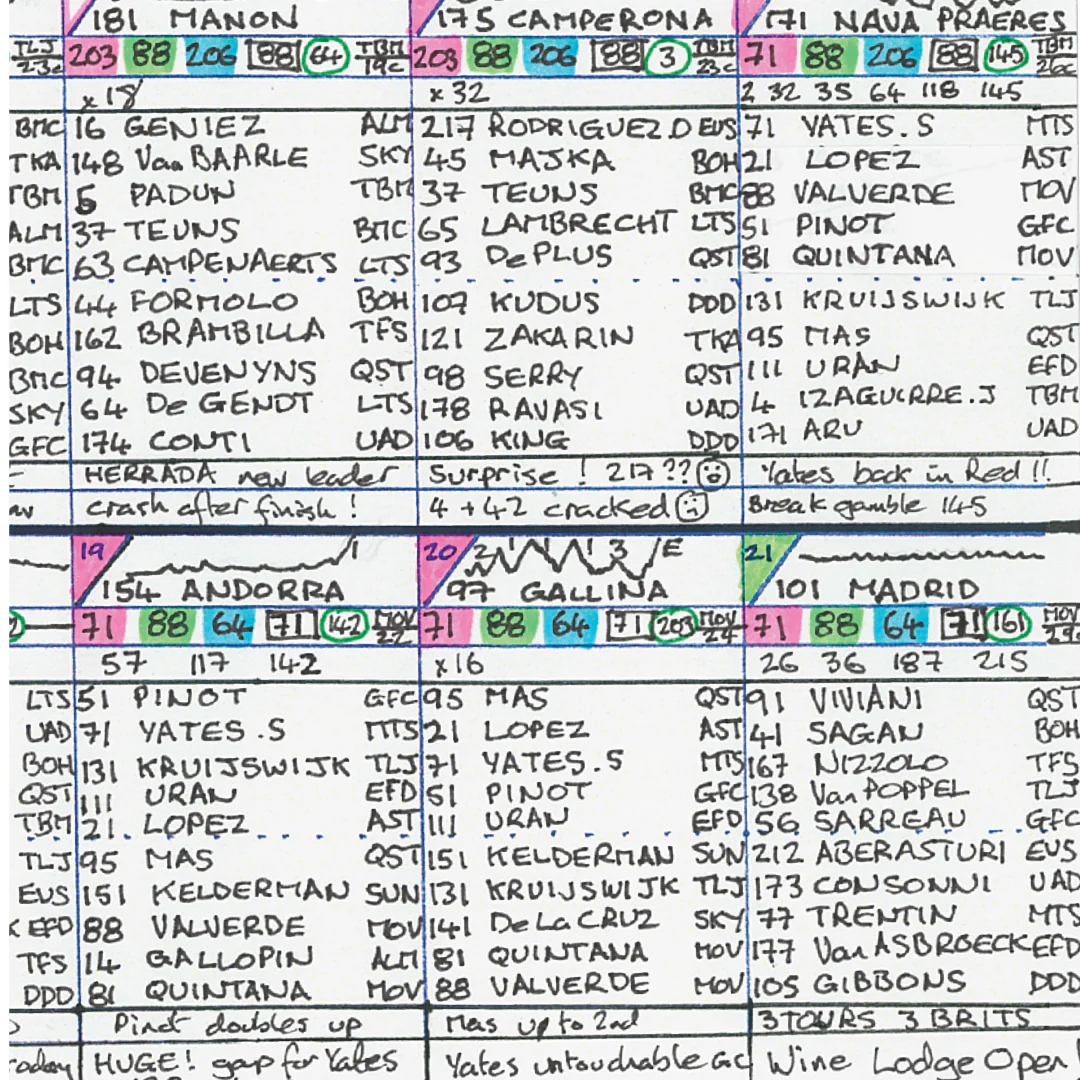 TLJ
23c
BMC
TKA
TBM
ALM
BMC
LTS
BOH
BMC
SKY
GFC
181 MANON
203 88 206 88 64 TBM
19c
x 18
16 GENIEZ ALM
148 Van BAARLE SKY
5 PADUN TBM
37 TEUNS BMC
63 CAMPENAERTS LTS
44 FORMOLO BOH
162 BRAMBILLA TFS
94 DEVENYNS QST
64 De GENDT LTS
174 CONTI UAD
HERRADA new leader
crash after finish !
175 CAMPERONA
203 88 206 88 3 TBM
23c
x 32
217 RODRIGUEZ.O EUS
45 MAJKA BOH
37 TEUNS BMC
65 LAMBRECHT LTS
93 De PLUS QST
107 KUDUS DDD
121 ZAKARIN TKA
98 SERRY QST
178 RAVASI UAD
106 KING DDD
Surprise ! 217 ??
4 + 42 cracked
171 NAVA PRAERES
71 88 206 88 145 TBM
26c
2 32 35 64 118 145
71 YATES.S MTS
21 LOPEZ AST
88 VALVERDE MOV
51 PINOT GFC
81 QUINTANA MOV
131 KRUIJSWIJK TLJ
95 MAS QST
111 URAN EFD
4 IZAGUIRRE.J TBM
171 ARU UAD
Yates back in Red !!
Break gamble 145
LTS
UAD
BOH
QST
TBM
TLJ
EUS
K EFD
TFS
DDD
oday
19
1
154 ANDORRA
71 88 64 71 142 MOV
22
57 117 142
51 PINOT GFC
71 YATES.S MTS
131 KRUIJSWIJK TLJ
111 URAN EFD
21 LOPEZ AST
95 MAS QST
151 KELDERMAN SUN
88 VALVERDE MOV
14 GALLOPIN ALM
81 QUINTANA MOV
Pinot doubles up
HUGE! gap for Yates
20 2 1 1 1 3 E
97 GALLINA
71 88 64 71 203 MOV
24
x16
95 MAS QST
21 LOPEZ AST
71 YATES.S MTS
51 PINOT GFC
111 URAN EFD
151 KELDERMAN SUN
131 KRUIJSWIJK TLJ
141 De La CRUZ SKY
81 QUINTANA MOV
88 VALVERDE MOV
Mas up to 2nd
Yates untouchable GC
21
101 MADRID
71 88 64 71 161 MOV
29c
26 36 187 215
91 VIVIANI QST
41 SAGAN BOH
167 NIZZOLO TFS
138 Van POPPEL TLJ
56 SARREAU GFC
212 ABERASTURI EUS
173 CONSONNI UAD
77 TRENTIN MTS
177 Van ASBROECK EFD
105 GIBBONS DDD
3 TOURS 3 BRITS
Wine Lodge Open!